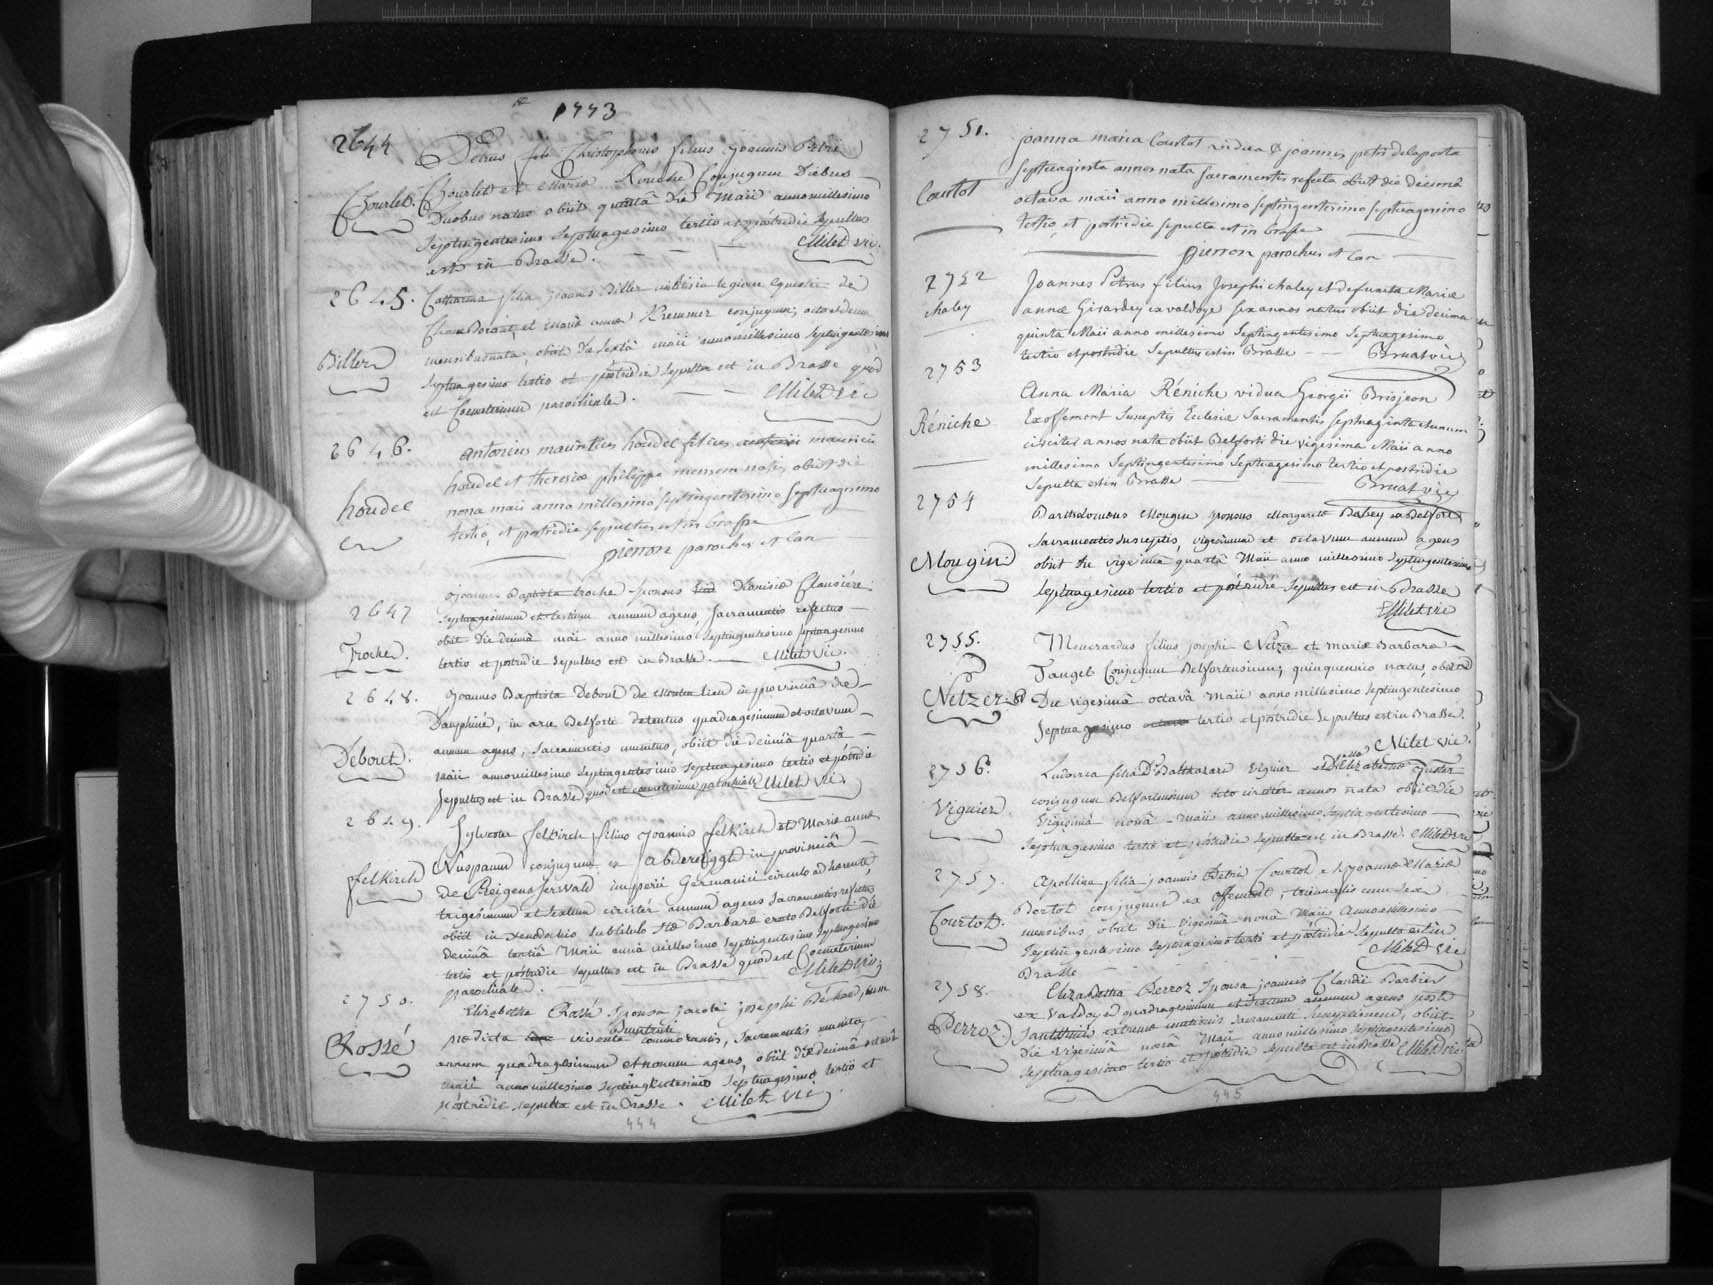 1773
2644
Petrus Christophorus filius joannis Petri
Chourlet.
Chourlet et Maria Conjugum Diebus
Duobus natus obiit quintâ die Maii anno millesimo
Septingentesimo Septuagesimo tertio et postridie Sepultus
est in Brasse. Milet vic.
2645.
Catharina filia joannis Biller militis in legione equestri de
et mariæ annæ Kremmer conjugum, octodecim
Biller
mensibus nata, obiit die Sextâ maii anno millesimo Septingentesimo
Septuagesimo tertio et postridie Sepulta est in Brasse quod
est Coemeterium parochiale. Milet vic
2646.
antonius mauritius houdel filius mauritii
houdel et theresiæ philippe mensem natus obiit die
houdel
nona maii anno millesimo septingentesimo septuagesimo
tertio, et postridie sepultus est in brasse
pierron parochus et can
2647
joannes Baptista troche sponsus Dionisiæ Clausiére
Septuagesimum et tertium annum agens, sacramentis refectus
Troche.
obiit die decimâ maii anno millesimo septingentesimo septuagesimo
tertio et postridie sepultus est in Brasse. Milet vic.
2648.
joannes Baptista Debout de in provinciâ de
Dauphiné, in arce Belforti detentus quadragesimum et octavum
Debout.
annum agens, sacramentis munitus, obiit die decimâ quartâ
maii anno millesimo septingentesimo septuagesimo tertio et postridie
sepultus est in Brasse, quod est coemeterium parochiale Milet vic.
2649.
Sylvester felkirch filius joannis felkirch et Mariæ annæ
felkirch
Nuspaum conjugum ex in provinciâ
de imperii Germanici circulo adhærente,
trigesimum et sextum circiter annum agens sacramentis refectus
obiit in xenodochio sub titulo Stæ Barbaræ erecto Belforti die
decimâ tertiâ Maii anno millesimo septingentesimo septuagesimo
tertio et postridie sepultus est in Brasse quod est Coemeterium
parochiale. Milet vic.
2750.
Elizabetha Rossé Sponsa jacobi josephi Bertrand, cum
Bruntruti
Rossé
prædicta vivente commorantis, Sacramentis munita,
annum quadragesimum et nonum agens, obiit die decimâ octavâ
maii anno millesimo septingentesimo septuagesimo tertio et
postridie sepulta est in Brasse. Milet vic
444
2751.
joanna maria Courtot vidua joannis petri delaporta
septuaginta annos nata sacramentis refecta obiit die decimâ
Courtot
octava maii anno millesimo septingentesimo septuagesimo
tertio, et postridie sepulta est in brasse
pierron parochus et can
2752
Joannes Petrus filius Josephi chaley et defunctæ Mariæ
chaley
annæ Girardey ex valdoye sex annos natus obiit die decima
quinta Maii anno millesimo Septingentesimo Septuagesimo
tertio et postridie Sepultus est in Brasse Bruat vic
2753
Anna Maria Réniche vidua Georgii Brisjean
Réniche
Ex offemont Susceptis Ecclesiæ Sacramentis Septuaginta et unum
circiter annos nata obiit Belforti die vigesima Maii anno
millesimo Septingentesimo Septuagesimo tertio et postridie
Sepulta est in Brasse Bruat vic
2754
Bartholomæus Mougin sponsus Margaretæ Babey ex Belfort
Mougin
Sacramentis susceptis, vigesimum et octavum annum agens
obiit die vigesimâ quartâ Maii anno millesimo septingentesimo
septuagesimo tertio et postridie Sepultus est in Brasse
Milet vic
2755.
Meinrardus filius josephi Netzer et mariæ Barbara
Netzer
Tanget Conjugum Belfortensium, quinquennio natus, obiit
Die vigesimâ octavâ Maii anno millesimo septingentesimo
septuagesimo tertio et postridie Sepultus est in Brasse.
Milet vic.
2756.
Ludovica filia Di Balthazari Viguier et Dæ Elizabethæ
Viguier
conjugum Belfortensium octo circiter annos nata obiit die
vigesimâ nonâ Maii anno millesimo septingentesimo
septuagesimo tertio et postridie sepulta est in Brasse. Milet vic
2757.
Apolline filia joannis Petri Courtot et joannæ Mariæ
Courtot.
Bertot conjugum ex offemont, cum sex
mensibus obiit die vigesimâ nonâ Maii anno millesimo
septingentesimo septuagesimo tertio et postridie sepulta est in
Brasse Milet vic
2758.
Elizabetha Perroz Sponsa joannis Claudii Barbier
ex Valdoye quadragesimum et annum agens post
Perroz
extremæ unctionis sacramenti susceptionem, obiit
die vigesimâ nonâ Maii anno millesimo septingentesimo
septuagesimo tertio et postridie sepulta est in Brasse Milet vic
445